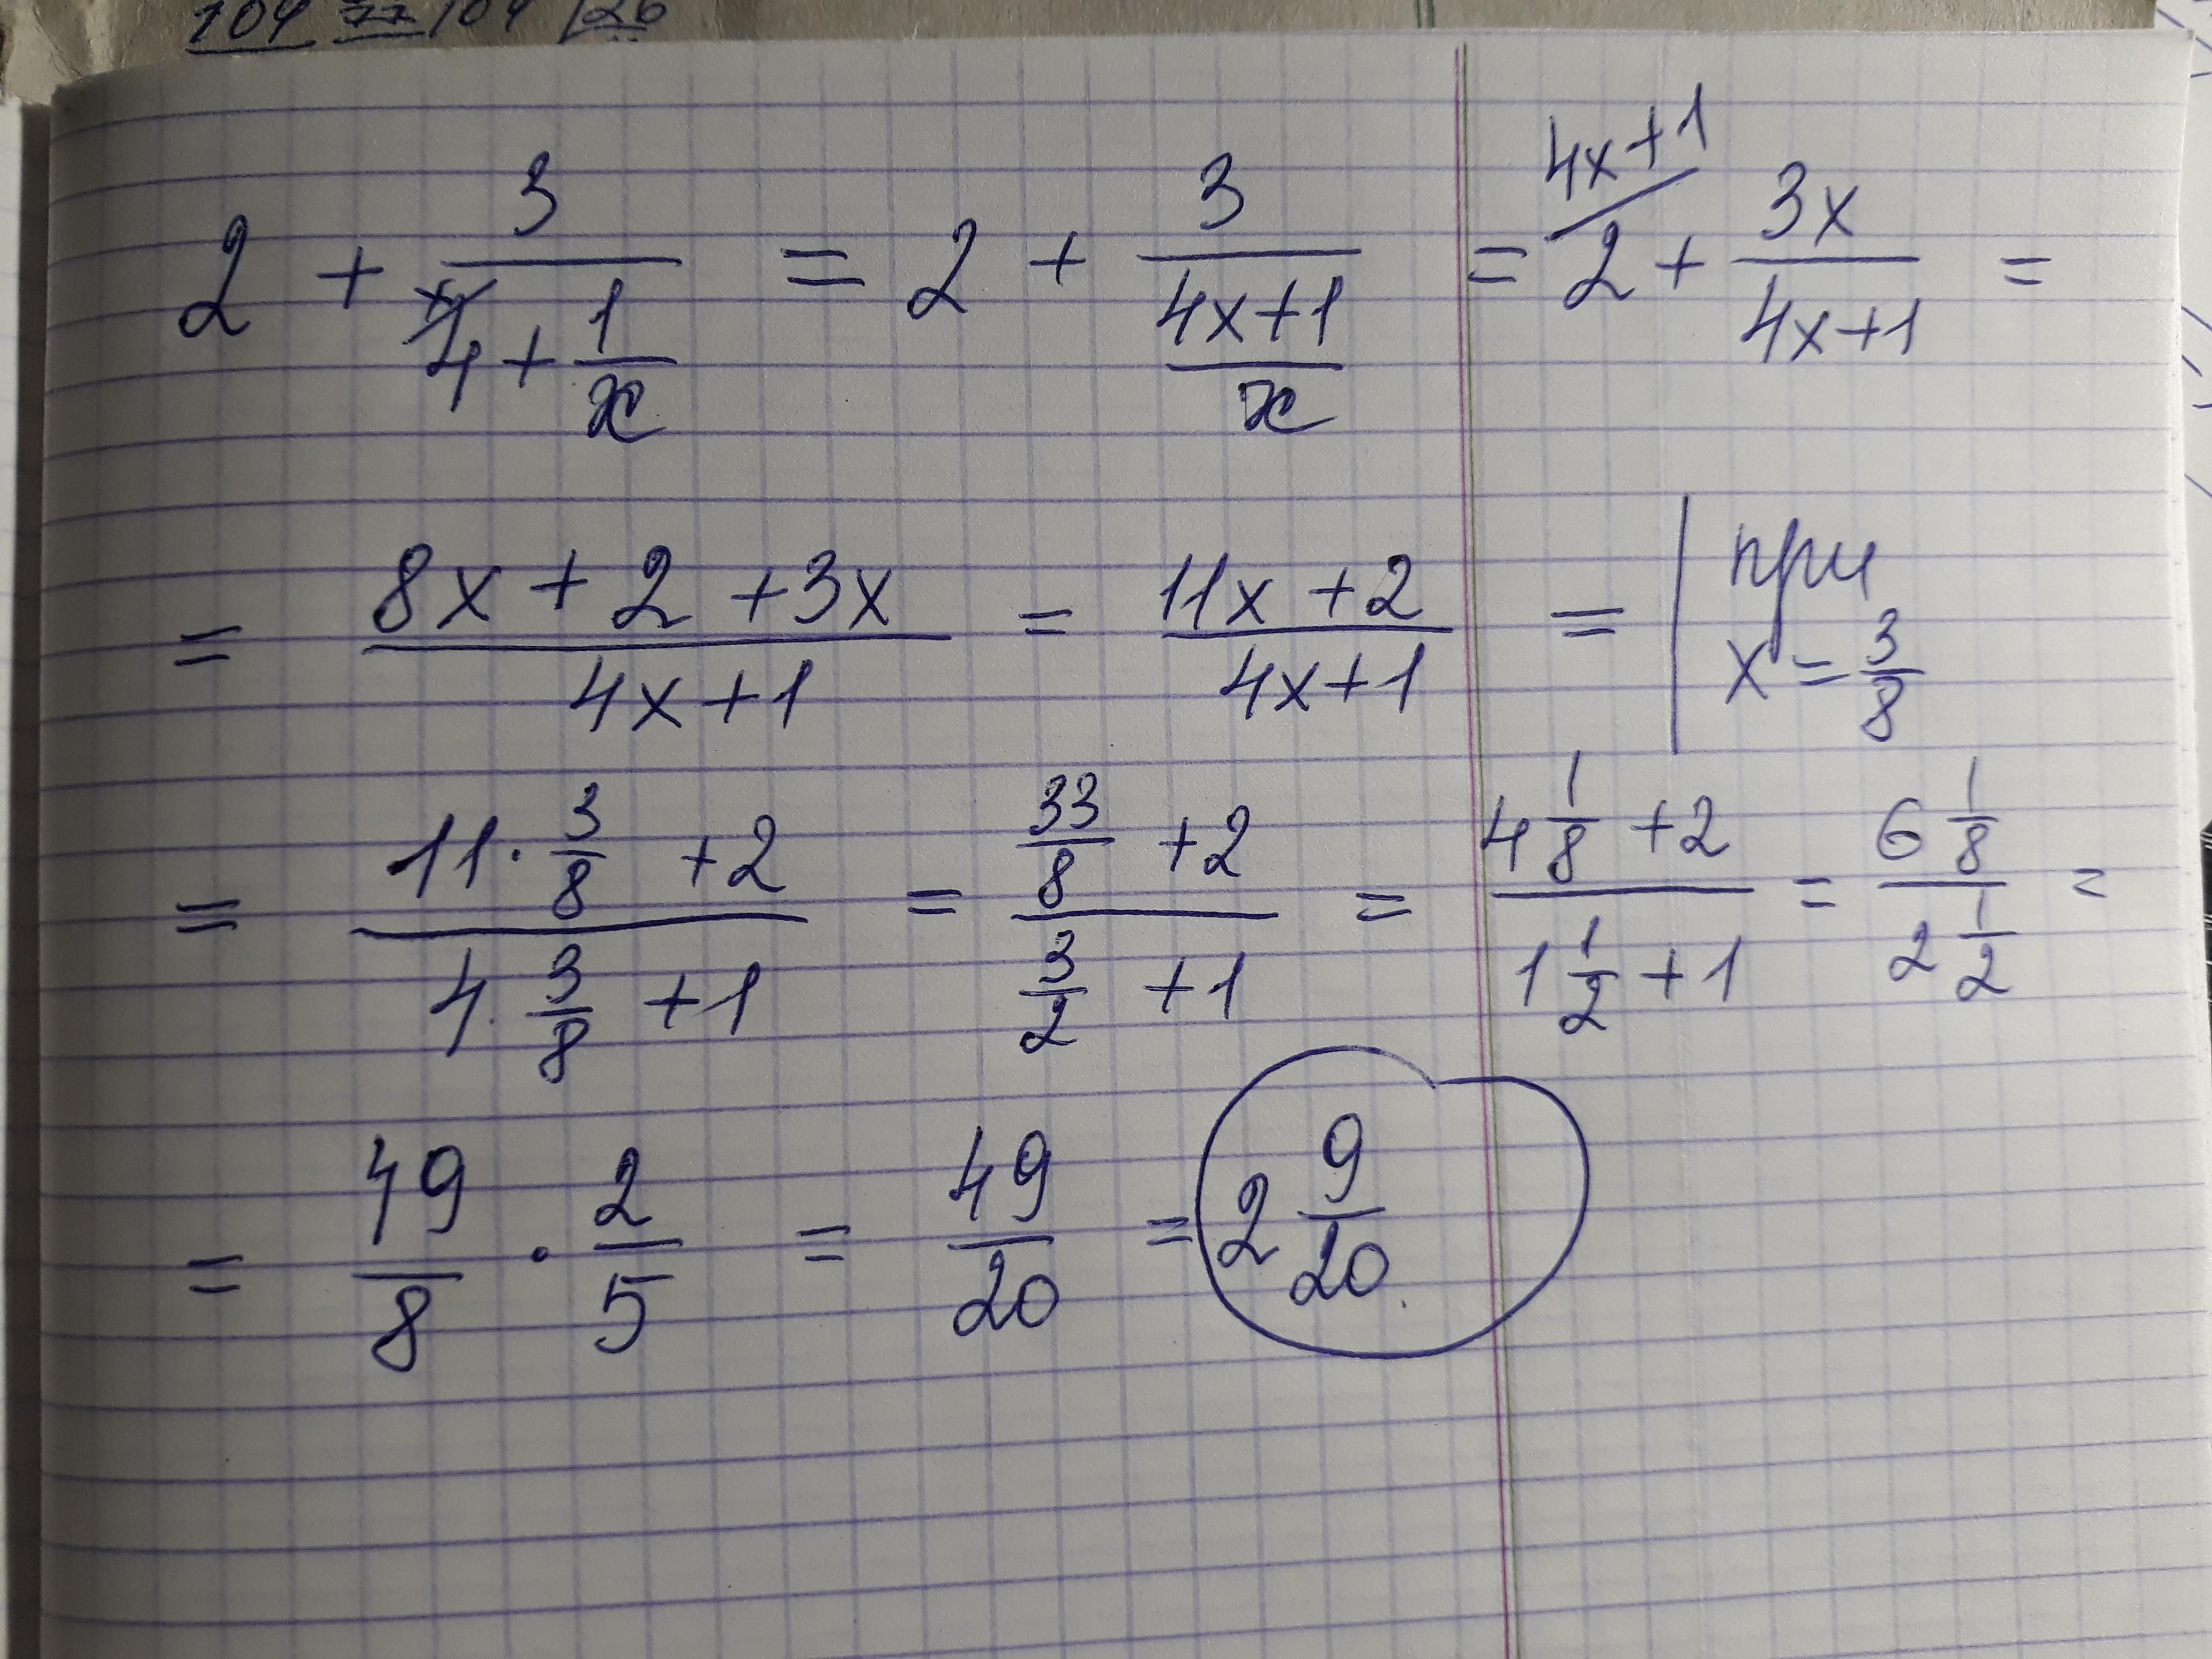 104 77 104 26
2 + 3/(4 + 1/x) = 2 + 3/((4x+1)/x) = 2 (4x+1 + 3x/(4x+1) =
= (8x + 2 + 3x)/(4x+1) = (11x + 2)/(4x+1) = | при x = 3/8
= (11 · 3/8 + 2)/(4 · 3/8 + 1) = (33/8 + 2)/(3/2 + 1) = (4 1/8 + 2)/(1 1/2 + 1) = (6 1/8)/(2 1/2) =
= 49/8 · 2/5 = 49/20 = 2 9/20.